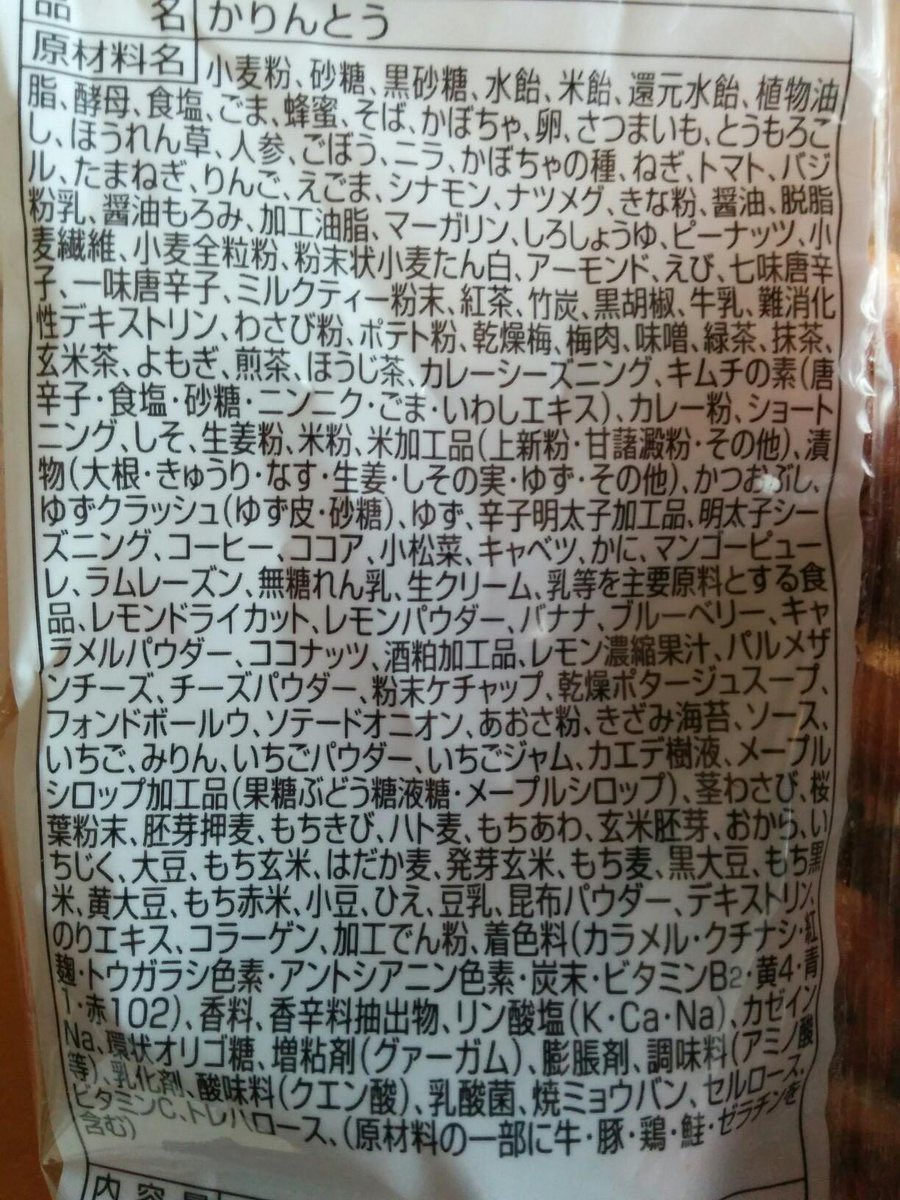 品 名 かりんとう
原材料名 小麦粉、砂糖、黒砂糖、水飴、米飴、還元水飴、植物油
脂、酵母、食塩、ごま、蜂蜜、そば、かぼちゃ、卵、さつまいも、とうもろこ
し、ほうれん草、人参、ごぼう、ニラ、かぼちゃの種、ねぎ、トマト、バジ
ル、たまねぎ、りんご、えごま、シナモン、ナツメグ、きな粉、醤油、脱脂
粉乳、醤油もろみ、加工油脂、マーガリン、しろしょうゆ、ピーナッツ、小
麦繊維、小麦全粒粉、粉末状小麦たん白、アーモンド、えび、七味唐辛
子、一味唐辛子、ミルクティー粉末、紅茶、竹炭、黒胡椒、牛乳、難消化
性デキストリン、わさび粉、ポテト粉、乾燥梅、梅肉、味噌、緑茶、抹茶、
玄米茶、よもぎ、煎茶、ほうじ茶、カレーシーズニング、キムチの素(唐
辛子・食塩・砂糖・ニンニク・ごま・いわしエキス)、カレー粉、ショート
ニング、しそ、生姜粉、米粉、米加工品(上新粉・甘藷澱粉・その他)、漬
物(大根・きゅうり・なす・生姜・しその実・ゆず・その他)、かつおぶし、
ゆずクラッシュ(ゆず皮・砂糖)、ゆず、辛子明太子加工品、明太子シー
ズニング、コーヒー、ココア、小松菜、キャベツ、かに、マンゴーピュー
レ、ラムレーズン、無糖れん乳、生クリーム、乳等を主要原料とする食
品、レモンドライカット、レモンパウダー、バナナ、ブルーベリー、キャ
ラメルパウダー、ココナッツ、酒粕加工品、レモン濃縮果汁、パルメザ
ンチーズ、チーズパウダー、粉末ケチャップ、乾燥ポタージュスープ、
フォンドボールウ、ソテードオニオン、あおさ粉、きざみ海苔、ソース、
いちご、みりん、いちごパウダー、いちごジャム、カエデ樹液、メープル
シロップ加工品(果糖ぶどう糖液糖・メープルシロップ)、茎わさび、桜
葉粉末、胚芽押麦、もちきび、ハト麦、もちあわ、玄米胚芽、おから、い
ちじく、大豆、もち玄米、はだか麦、発芽玄米、もち麦、黒大豆、もち黒
米、黄大豆、もち赤米、小豆、ひえ、豆乳、昆布パウダー、デキストリン、
のりエキス、コラーゲン、加工でん粉、着色料(カラメル・クチナシ・紅
麹・トウガラシ色素・アントシアニン色素・炭末・ビタミンB2・黄4・青
1・赤102)、香料、香辛料抽出物、リン酸塩(K・Ca・Na)、カゼイン
Na、環状オリゴ糖、増粘剤(グァーガム)、膨脹剤、調味料(アミノ酸
等)、乳化剤、酸味料(クエン酸)、乳酸菌、焼ミョウバン、セルロース、
ビタミンC、トレハロース、(原材料の一部に牛・豚・鶏・鮭・ゼラチンを
含む)
内容量